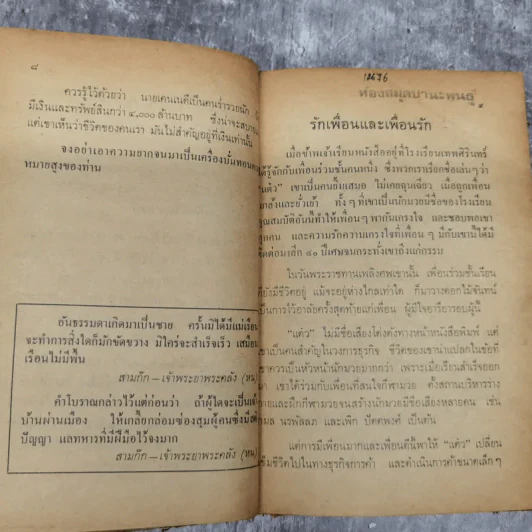 ๘
ควรรู้ไว้ด้วยว่า นายเคนเนดีเป็นคนร่ำรวยนัก
มีเงินและทรัพย์สินกว่า ๔,๐๐๐ ล้านบาท ซึ่งน่าจะสบาย
แต่เขาเห็นว่าชีวิตของคนเรา มันไม่สำคัญอยู่ที่เงินเท่านั้น
จงอย่าเอาความยากจนมาเป็นเครื่องบั่นทอน
หมายสูงของท่าน
อันธรรมดาเกิดมาเป็นชาย ครั้นมิได้มีแม่เรือน
จะทำการสิ่งใดก็มักขัดขวาง มิใคร่จะสำเร็จเร็ว เสมือน
เรือนไม่มีพื้น
สามก๊ก – เจ้าพระยาพระคลัง (หน)
คำโบราณกล่าวไว้แต่ก่อนว่า ถ้าผู้ใดจะเป็นเจ้า
บ้านผ่านเมือง ให้เกลี้ยกล่อมซ่องสุมผู้คนซึ่งมีสติ
ปัญญา แลทหารที่มีฝีมือไว้จงมาก
สามก๊ก – เจ้าพระยาพระคลัง (หน)
ห้องสมุดปานะพันธุ์
๙
รักเพื่อนและเพื่อนรัก
เมื่อข้าพเจ้าเรียนหนังสืออยู่ที่โรงเรียนเทพศิรินทร์
ได้รู้จักกับเพื่อนร่วมชั้นคนหนึ่ง ซึ่งพวกเราเรียกชื่อเล่นๆ ว่า
"แต้ว" เขาเป็นคนยิ้มเสมอ ไม่เคยฉุนเฉียว เมื่อถูกเพื่อน
แกล้งและยั่วเย้า ทั้ง ๆ ที่เขาเป็นนักมวยมีชื่อของโรงเรียน
คุณสมบัติอันนี้ทำให้เพื่อนๆ พากันเกรงใจ และชอบพอเขา
ทุกคน และความรักความเกรงใจที่เพื่อน ๆ มีกับเขานี้ได้มี
ติดต่อมาอีก ๔๐ ปีเศษจนกระทั่งเขาถึงแก่กรรม
ในวันพระราชทานเพลิงศพเขานั้น เพื่อนร่วมชั้นเรียน
ที่ยังมีชีวิตอยู่ แม้จะอยู่ห่างไกลเท่าใด ก็มาวางดอกไม้จันทน์
เป็นการไว้อาลัยครั้งสุดท้ายแก่เพื่อน ผู้มีใจอารีอารอบผู้นี้
"แต้ว" ไม่มีชื่อเสียงโด่งดังทางหน้าหนังสือพิมพ์ แต่
เขาเป็นคนสำคัญในวงการธุรกิจ ชีวิตของเขานำแปลกในข้อที่
ควรจะเป็นหัวหน้านักมวยมากกว่า เพราะเมื่อเรียนสำเร็จออก
มา เขาได้ร่วมกับเพื่อนที่สนใจกีฬามวย ตั้งสถานบริหารร่าง
กายและฝึกกีฬามวยจนสร้างนักมวยมีชื่อเสียงหลายคน เช่น
สมล นรพัลลภ และเพิก ปัดตพงศ์ เป็นต้น
แต่การมีเพื่อนมากและเพื่อนดีนี้พาให้ "แต้ว" เปลี่ยน
เข็มชีวิตไปในทางธุรกิจการค้า และดำเนินการค้าขนาดเล็กๆ